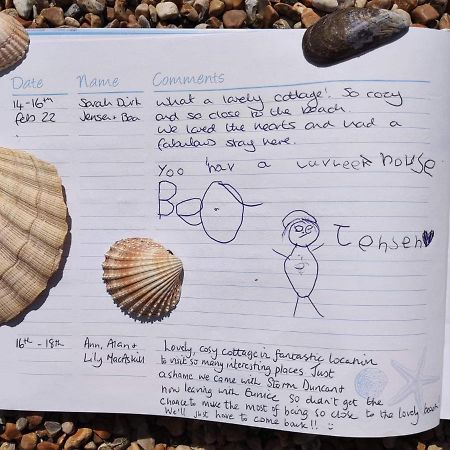 Date Name Comments
14-16th Sarah Dirk What a lovely cottage! So cozy
Feb 22 Jensen + Bea and so close to the beach
We loved the hearts and had a
fabulous stay here.
Yoo hav a house
Bea
Jensen
16th - 18th Ann, Alan + Lovely, cosy cottage in fantastic location
Lily MacAskill to visit so many interesting places. Just
a shame we came with Storm Duncan +
now leaving with Eunice so didn't get the
chance to make the most of being so close to the lovely beach
We'll just have to come back!! :)